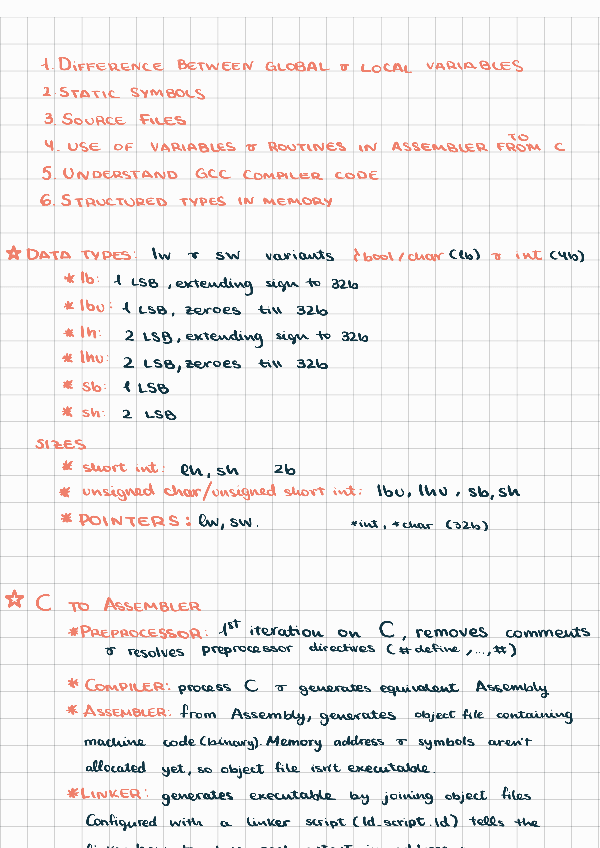 1. DIFFERENCE BETWEEN GLOBAL & LOCAL VARIABLES
2. STATIC SYMBOLS
3. SOURCE FILES
TO
4. USE OF VARIABLES & ROUTINES IN ASSEMBLER FROM C
5. UNDERSTAND GCC COMPILER CODE
6. STRUCTURED TYPES IN MEMORY
☆ DATA TYPES: lw & sw variants ¿bool/char (1b) & int (4b)
* lb: 1 LSB, extending sign to 32b
* lbu: 1 LSB, zeroes till 32b
* lh: 2 LSB, extending sign to 32b
* lhu: 2 LSB, zeroes till 32b
* sb: 1 LSB
* sh: 2 LSB
SIZES
* short int: lh, sh 2b
* unsigned char/unsigned short int: lbu, lhu, sb, sh
* POINTERS: lw, sw. *int, *char (32b)
☆ C TO ASSEMBLER
* PREPROCESSOR: 1st iteration on C, removes comments
& resolves preprocessor directives (#define,...,#)
* COMPILER: process C & generates equivalent Assembly
* ASSEMBLER: from Assembly, generates object file containing
machine code (binary). Memory address & symbols aren't
allocated yet, so object file isn't executable.
* LINKER: generates executable by joining object files
Configured with a linker script (ld_script.ld) tells the